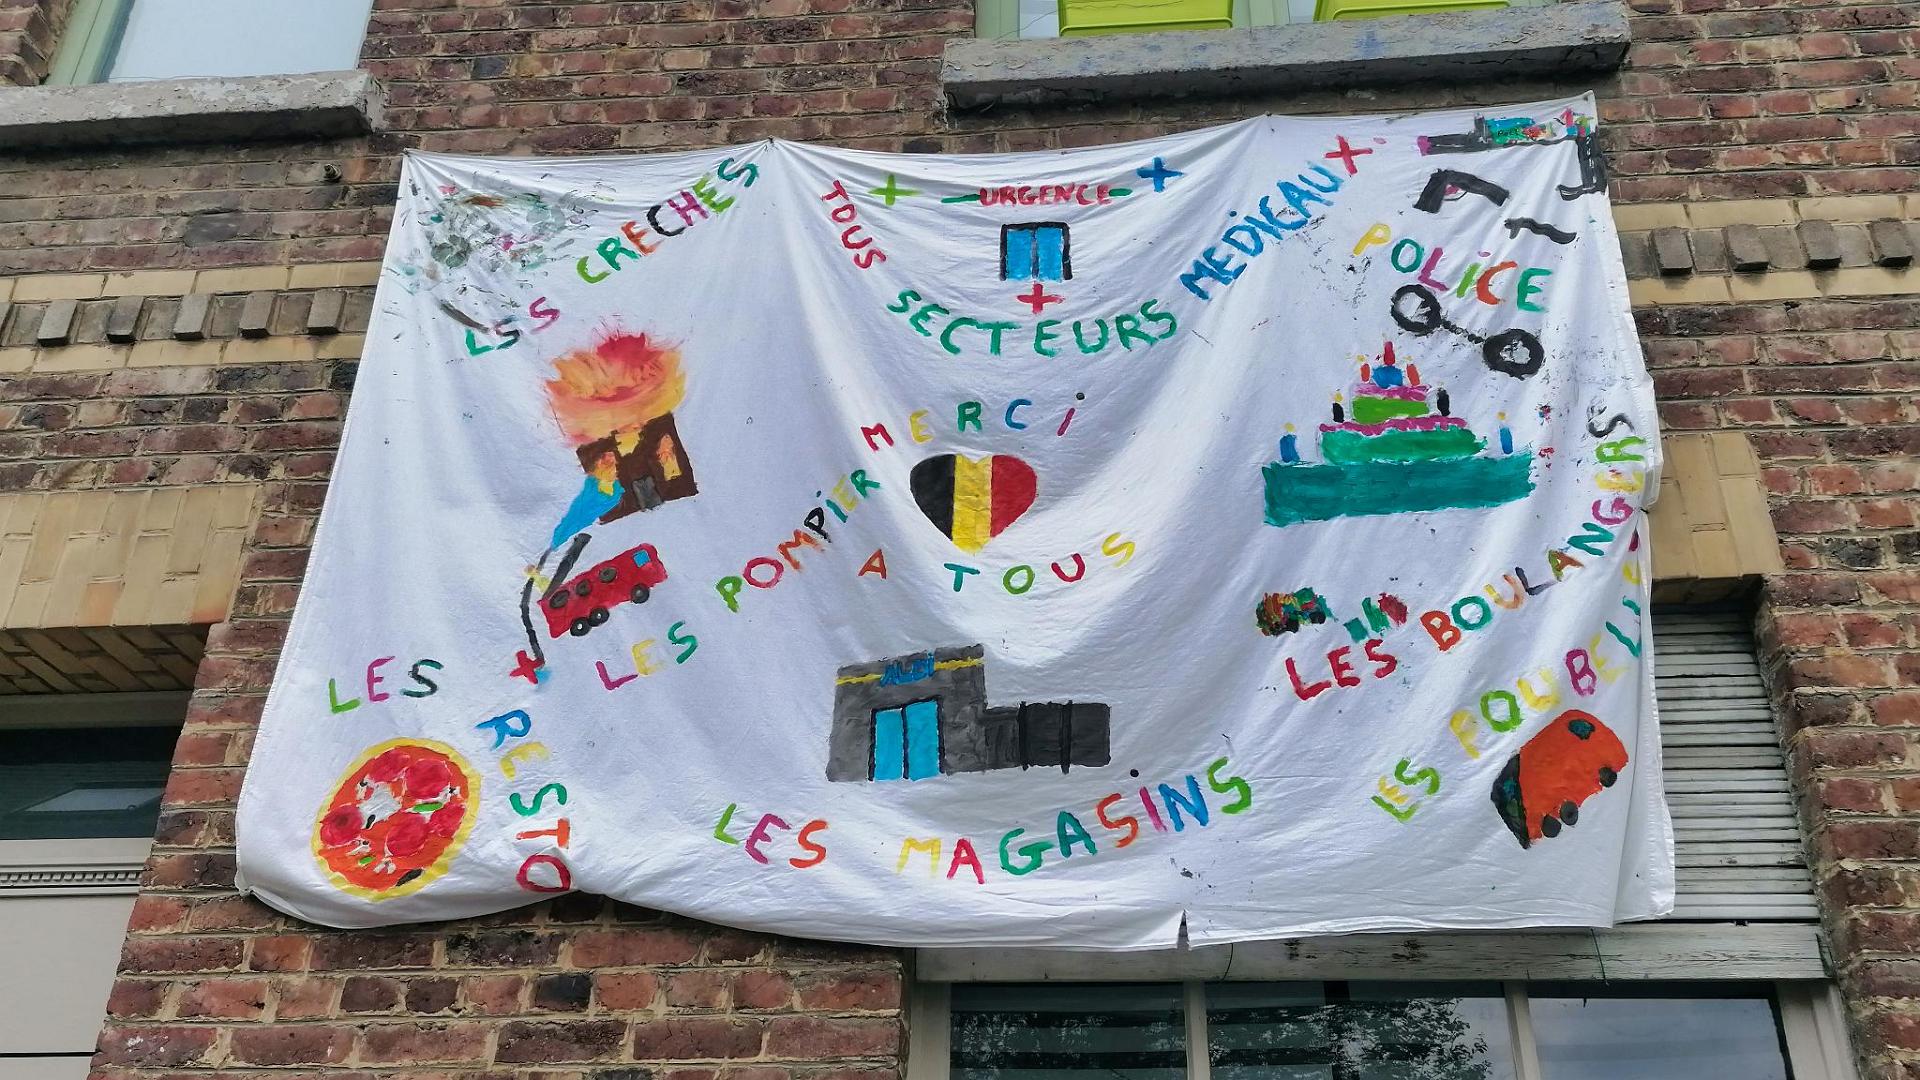 URGENCE
TOUS SECTEURS MEDICAUX
LSS CRECHES
POLICE
MERCI
A TOUS
LES POMPIER
LES BOULANGERS
LES RESTO
ALDI
LES MAGASINS
LES POUBELLES